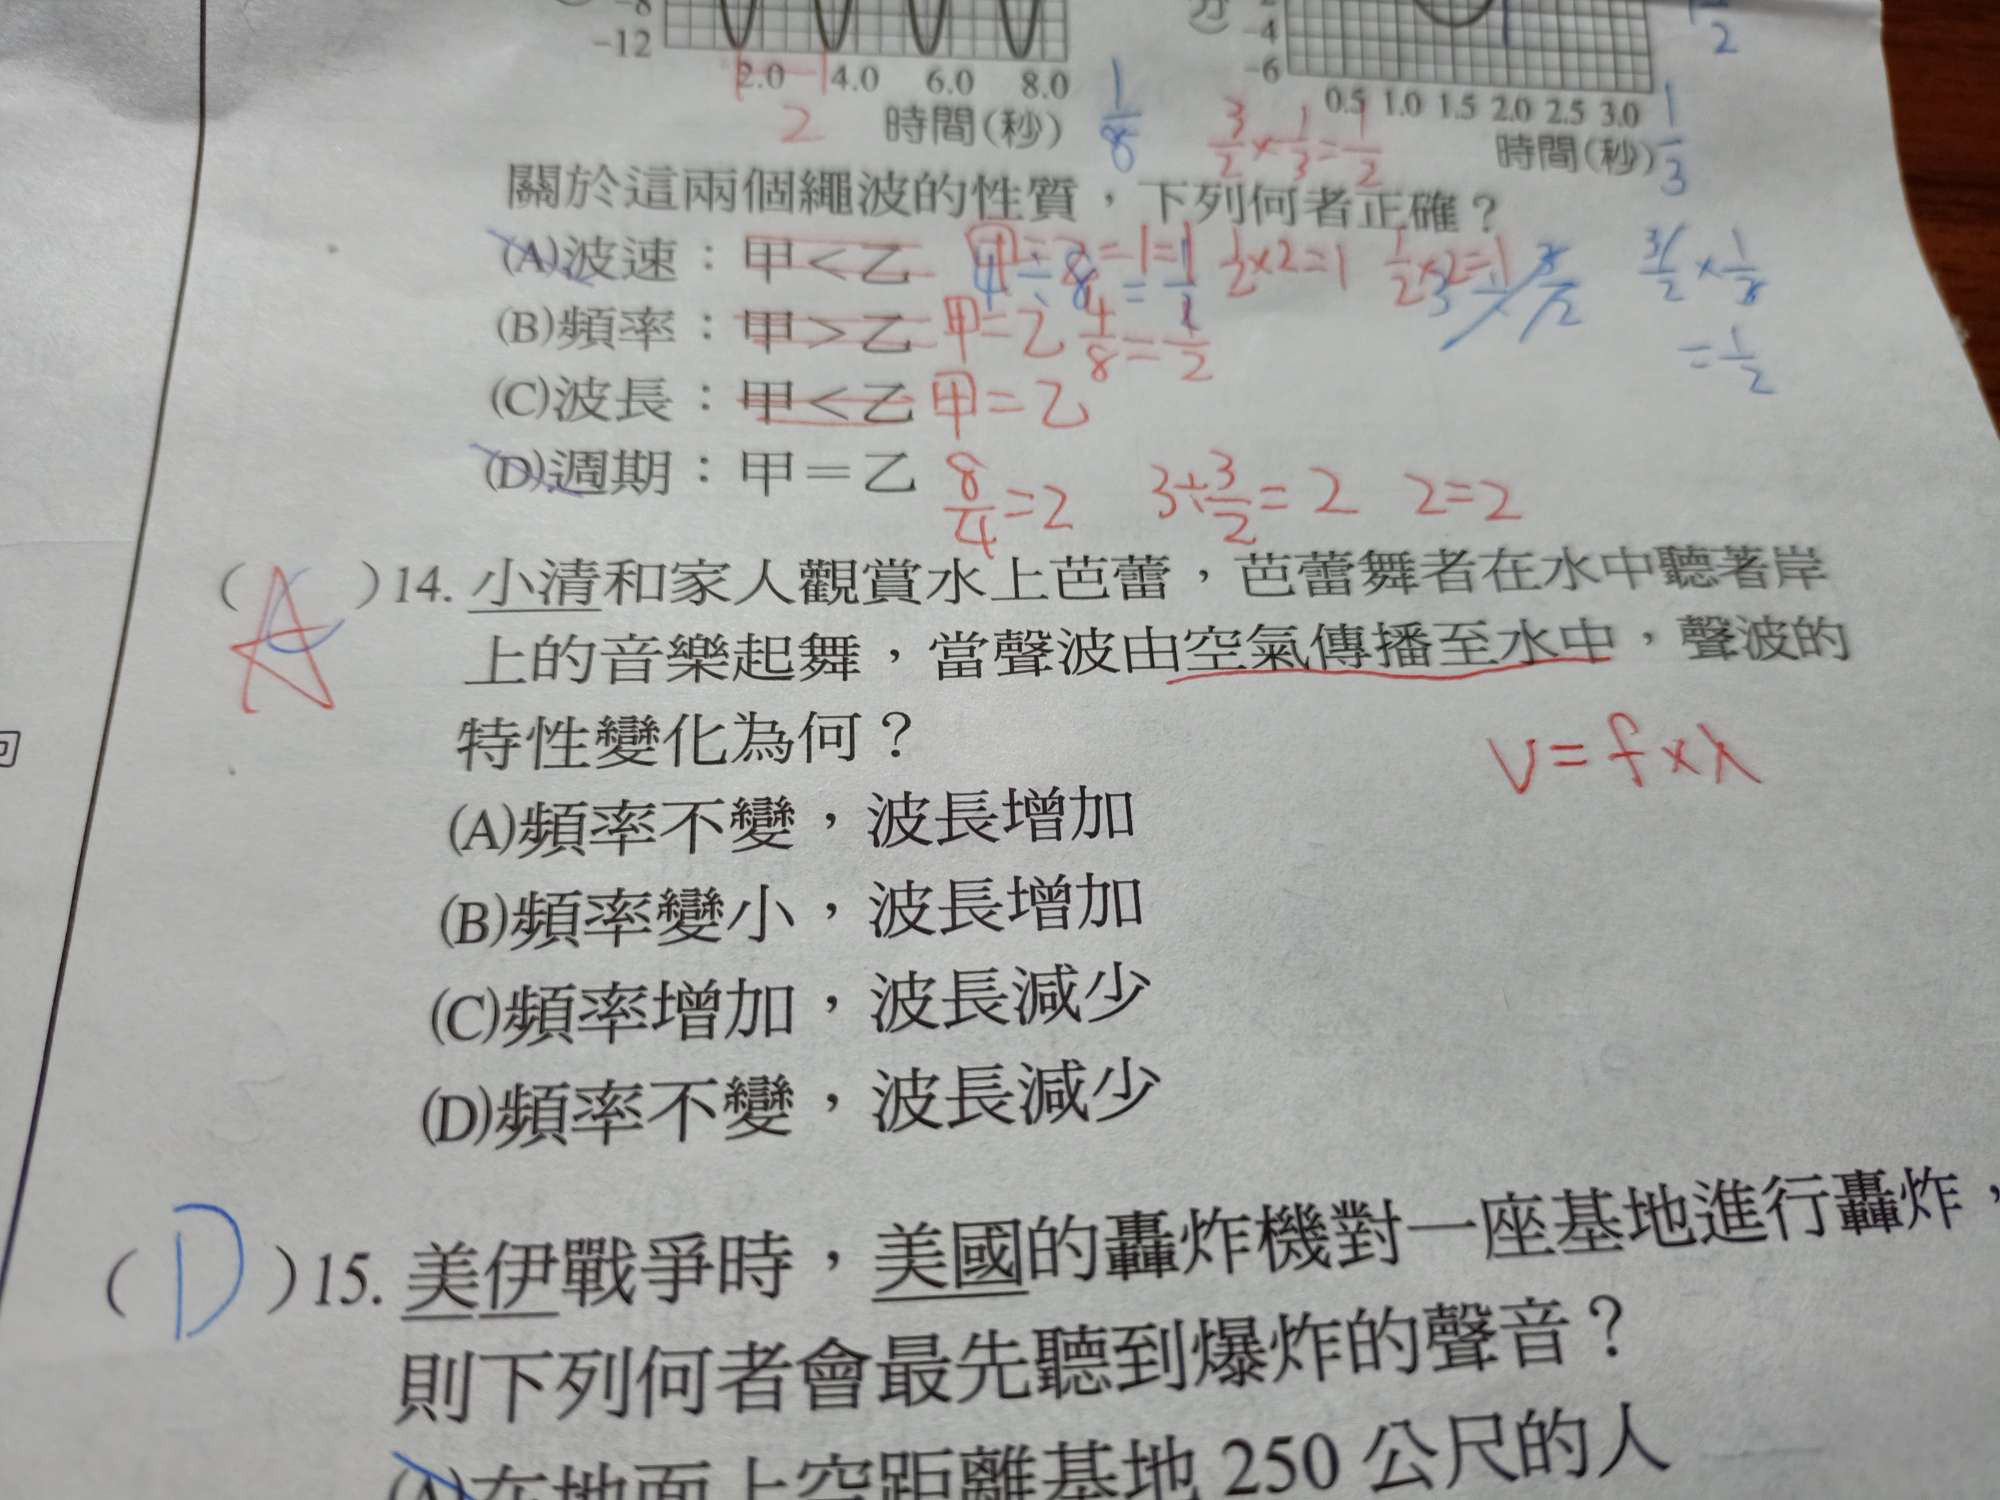 -8
-12
2.0 4.0 6.0 8.0
2
時間(秒)
1/8
-4
-6
0.5 1.0 1.5 2.0 2.5 3.0
時間(秒)
3/2×1/3=1/2
1/3
關於這兩個繩波的性質，下列何者正確？
(A)波速：甲＜乙 1/2×2=1 1/2×2=1 3/2×1/3
(B)頻率：甲＞乙 甲=乙 4/8=1/2 =1/2
(C)波長：甲＜乙 甲=乙
(D)週期：甲＝乙 8/4=2 3÷3/2=2 2=2
(A)14. 小清和家人觀賞水上芭蕾，芭蕾舞者在水中聽著岸
上的音樂起舞，當聲波由空氣傳播至水中，聲波的
特性變化為何？
V=f×λ
(A)頻率不變，波長增加
(B)頻率變小，波長增加
(C)頻率增加，波長減少
(D)頻率不變，波長減少
(D)15. 美伊戰爭時，美國的轟炸機對一座基地進行轟炸，
則下列何者會最先聽到爆炸的聲音？
(A)在地面上空距離基地 250 公尺的人